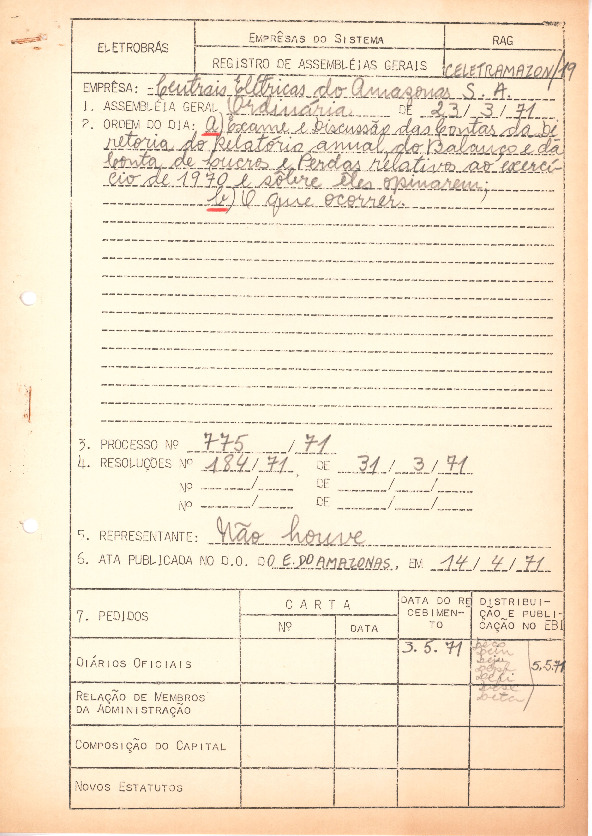 ELETROBRÁS
EMPRÊSAS DO SISTEMA
RAG
REGISTRO DE ASSEMBLÉIAS GERAIS
CELETRAMAZON/19
EMPRÊSA: Centrais Elétricas do Amazonas S. A.
1. ASSEMBLÉIA GERAL Ordinária DE 23/3/71
2. ORDEM DO DIA: a) Exame e Discussão das Contas da Di
retoria do Relatório anual do Balanço e da
Conta de Lucros e Perdas relativo ao exercí-
cio de 1970 e sôbre êles opinarem;
b) O que ocorrer.
3. PROCESSO Nº 775/71
4. RESOLUÇÕES Nº 184/71. DE 31/3/71
Nº / DE / /
Nº / DE / /
5. REPRESENTANTE: Não houve
6. ATA PUBLICADA NO D.O. DO E. DO AMAZONAS, EM 14/4/71
7. PEDIDOS
CARTA
Nº
DATA
DATA DO RE
CEBIMEN-
TO
DISTRIBUI-
ÇÃO E PUBLI-
CAÇÃO NO EBI
DIÁRIOS OFICIAIS
3.5.71
5.5.71
RELAÇÃO DE MEMBROS
DA ADMINISTRAÇÃO
COMPOSIÇÃO DO CAPITAL
NOVOS ESTATUTOS